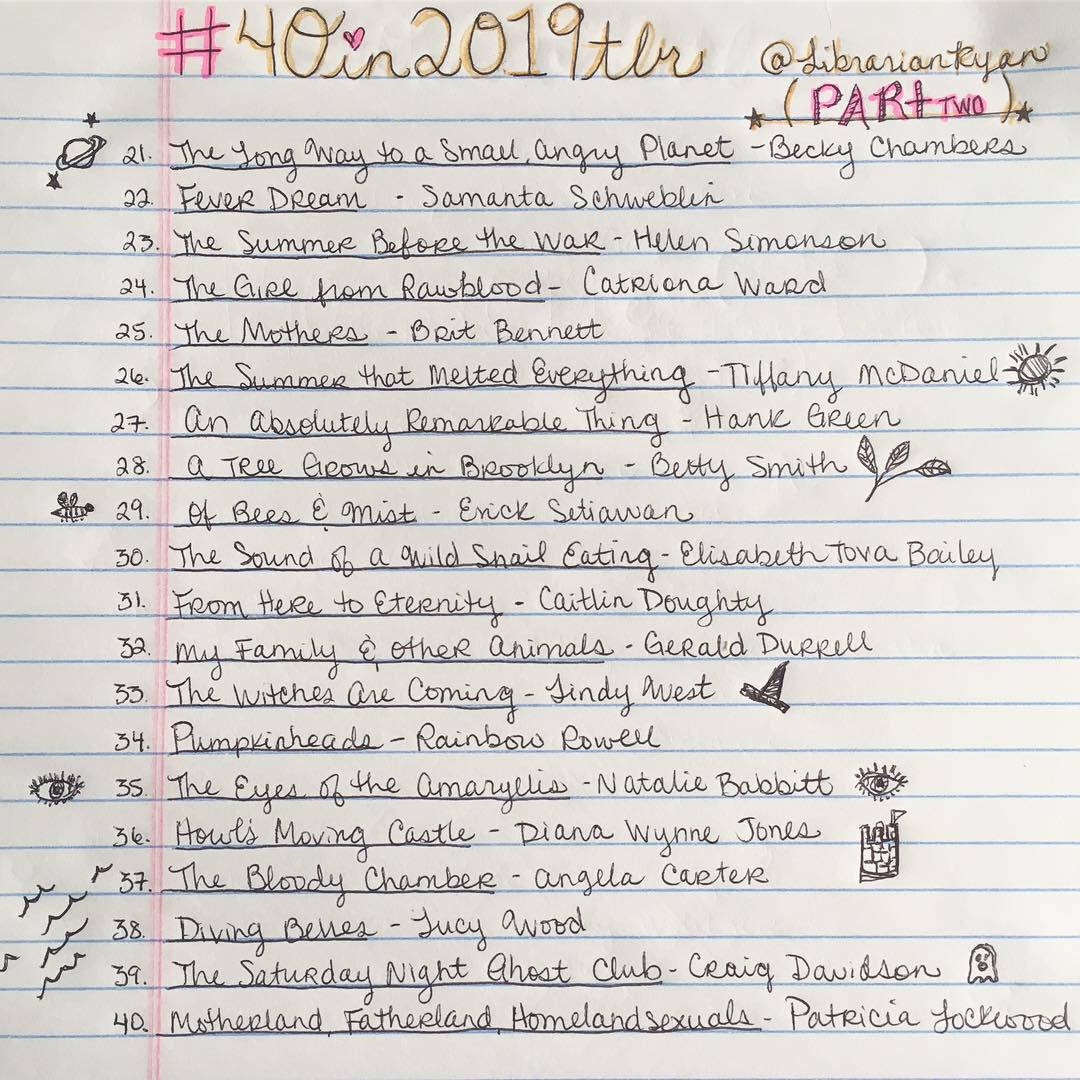 #40in2019tbr
@librariankyan
(PART TWO)
21. The Long Way to a Small, Angry Planet - Becky Chambers
22. Fever Dream - Samanta Schweblin
23. The Summer Before the War - Helen Simonson
24. The Girl from Rawblood - Catriona Ward
25. The Mothers - Brit Bennett
26. The Summer that Melted Everything - Tiffany McDaniel
27. An Absolutely Remarkable Thing - Hank Green
28. A Tree Grows in Brooklyn - Betty Smith
29. Of Bees & Mist - Erick Setiawan
30. The Sound of a Wild Snail Eating - Elisabeth Tova Bailey
31. From Here to Eternity - Caitlin Doughty
32. My Family & Other Animals - Gerald Durrell
33. The Witches Are Coming - Lindy West
34. Pumpkinheads - Rainbow Rowell
35. The Eyes of the Amaryllis - Natalie Babbitt
36. Howl's Moving Castle - Diana Wynne Jones
37. The Bloody Chamber - Angela Carter
38. Diving Belles - Lucy Wood
39. The Saturday Night Ghost Club - Craig Davidson
40. Motherland, Fatherland, Homelandsexuals - Patricia Lockwood